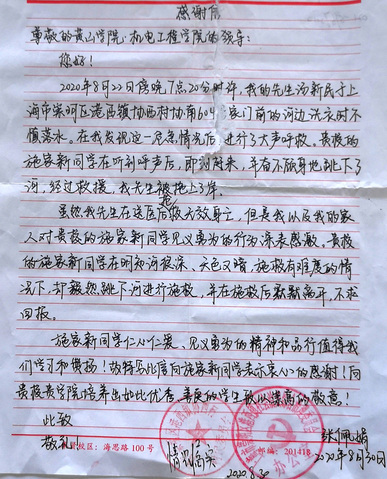 感谢信
尊敬的黄山学院机电工程学院的领导:
您好!
2020年8月22日傍晚7点20分时许,我的先生汤新民于上
海市崇明区港西镇协西村协南604号家门前的河边洗衣时不
慎落水。在我发现这一危急情况后进行了大声呼救。贵校的
施家新同学在听到呼声后,即刻赶来,并奋不顾身地跳下了
河,经过救援,我先生被拖上了岸。
虽然我先生在送医后抢救无效身亡,但是我以及我的家
人对贵校的施家新同学见义勇为的行为深表感激。贵校
的施家新同学在明知河很深、天色又暗,施救有难度的情
况下,却毅然跳下河进行施救,并在施救后默默离开,不求
回报。
施家新同学仁心仁爱、见义勇为的精神和品行值得我
们学习和赞扬!故特写此信向施家新同学表示衷心的感谢!向
贵校贵学院培养出如此优秀、善良的学生致以崇高的敬意!
此致
敬礼!
张佩娟
2020年8月30日
情况属实
2020.8.30
校区:海思路100号
邮编:201418
办公